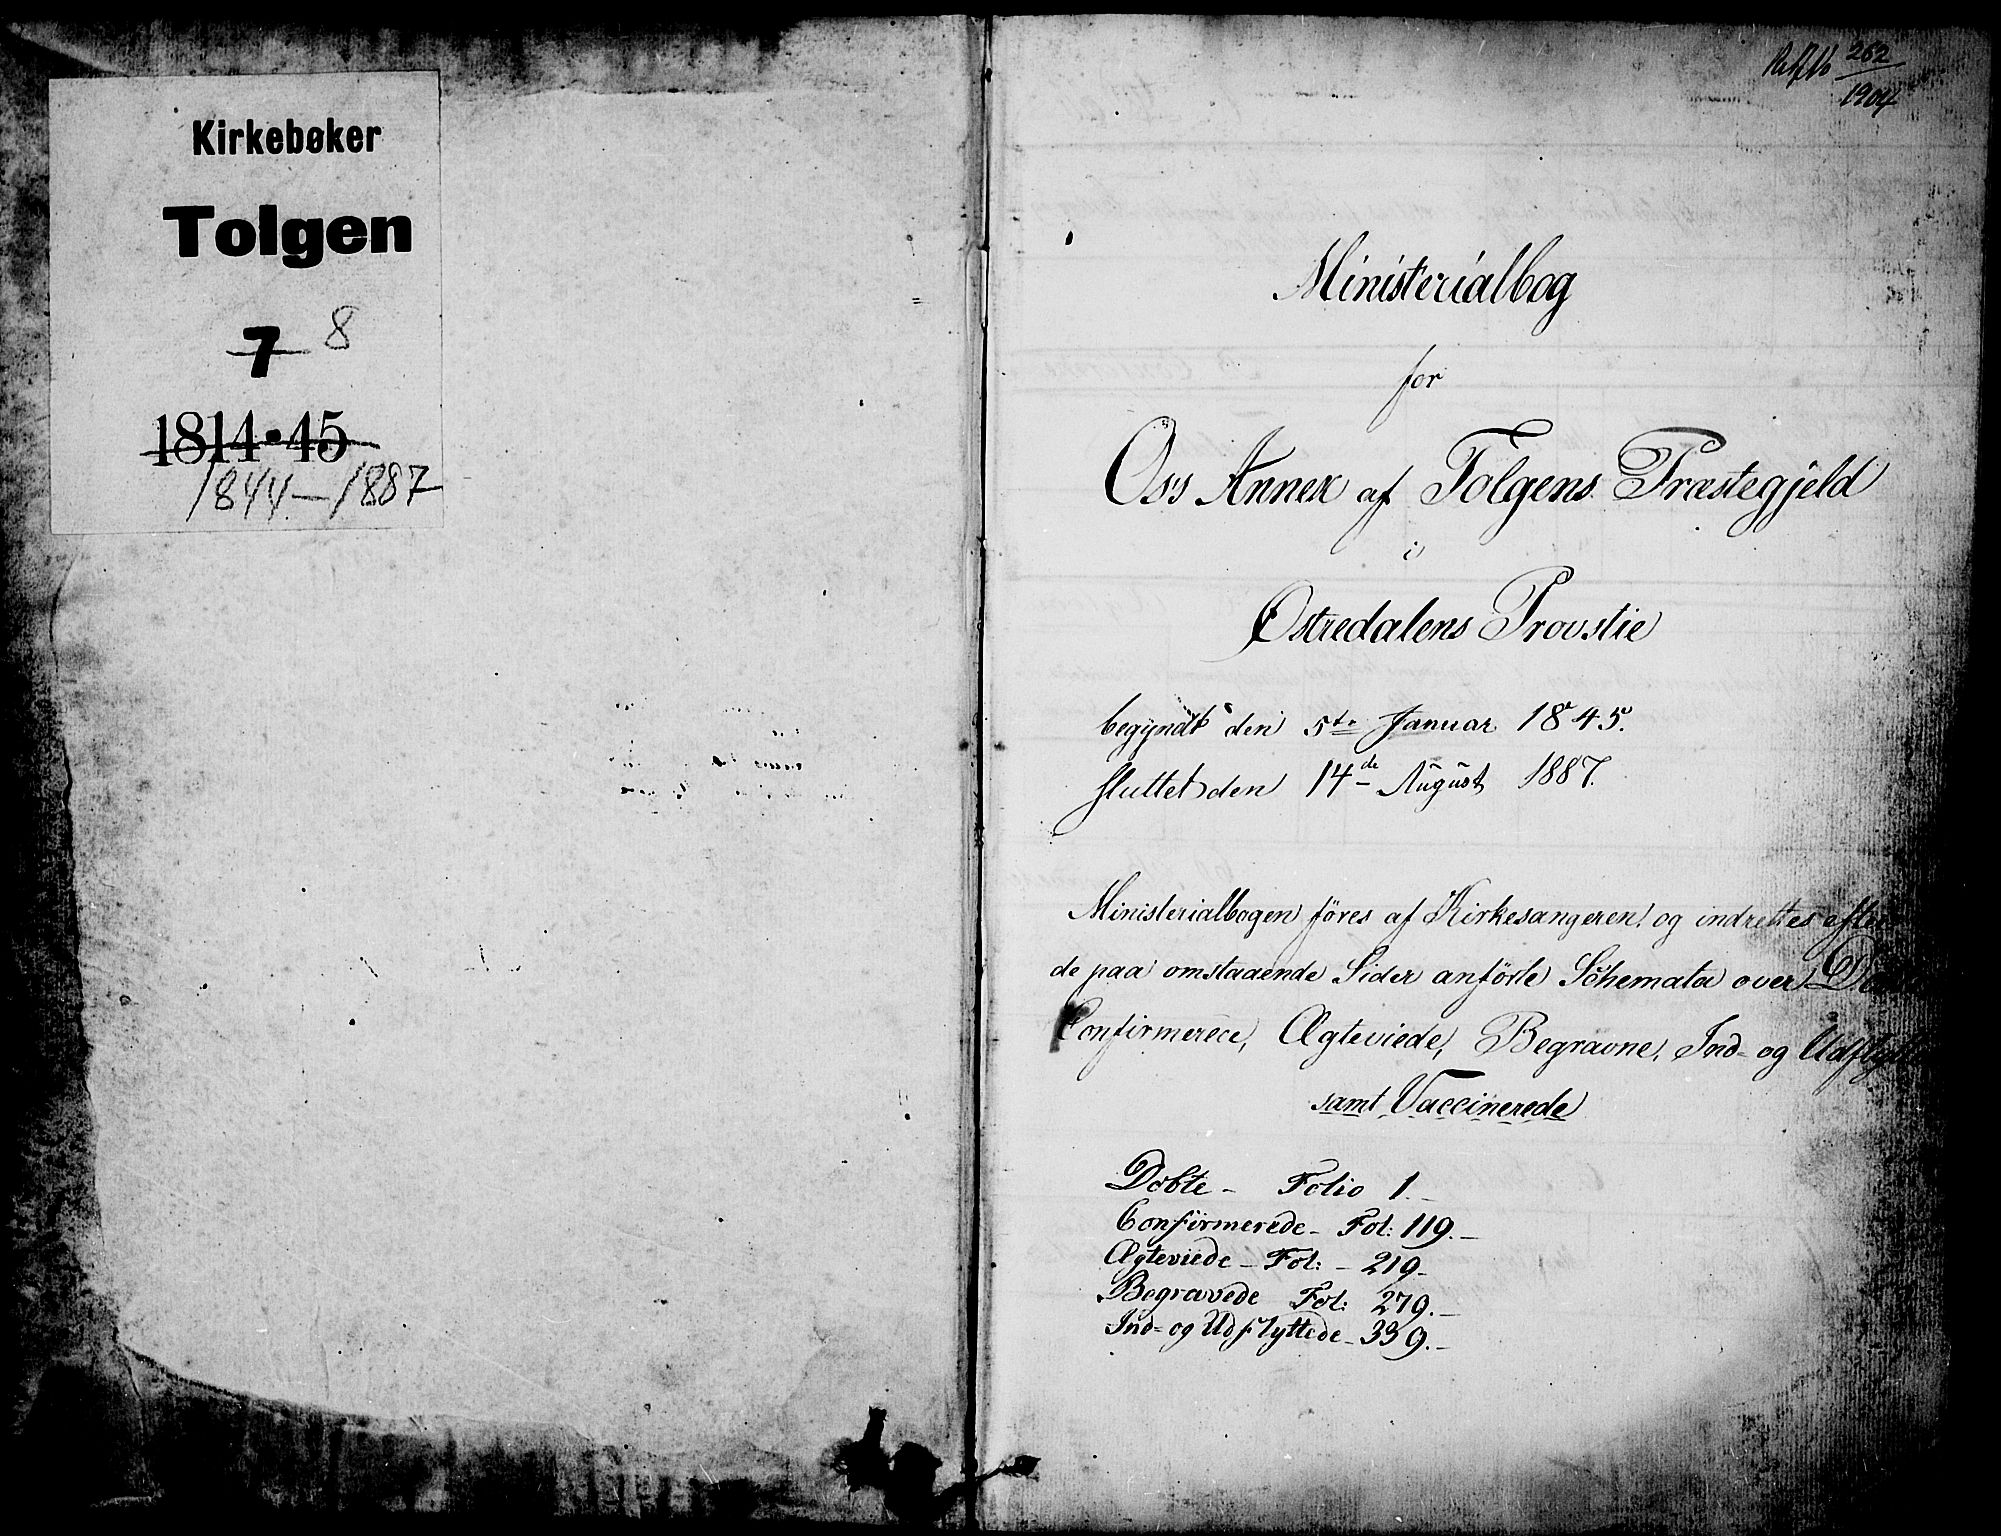 Kirkebøker
Tolgen
7 8
1814-45
1844-1887
262
1904
Ministerialbog
for
Os's Annex af Tolgens Præstegjeld
i
Østredalens Provstie
begyndt den 5te Januar 1845.
sluttet den 14de August 1887.
Ministerialbogen føres af Kirkesangeren, og indrettes efter
de paa omstaaende Sider anførte Schemata over
Confirmerede, Ægteviede, Begravne, Ind- og
samt Vaccinerede
Døbte - Folio 1.-
Confirmerede - Fol: 119.-
Ægteviede - Fol: - 219-
Begravede Fol: 279.-
Ind- og Udflyttede - 339.-